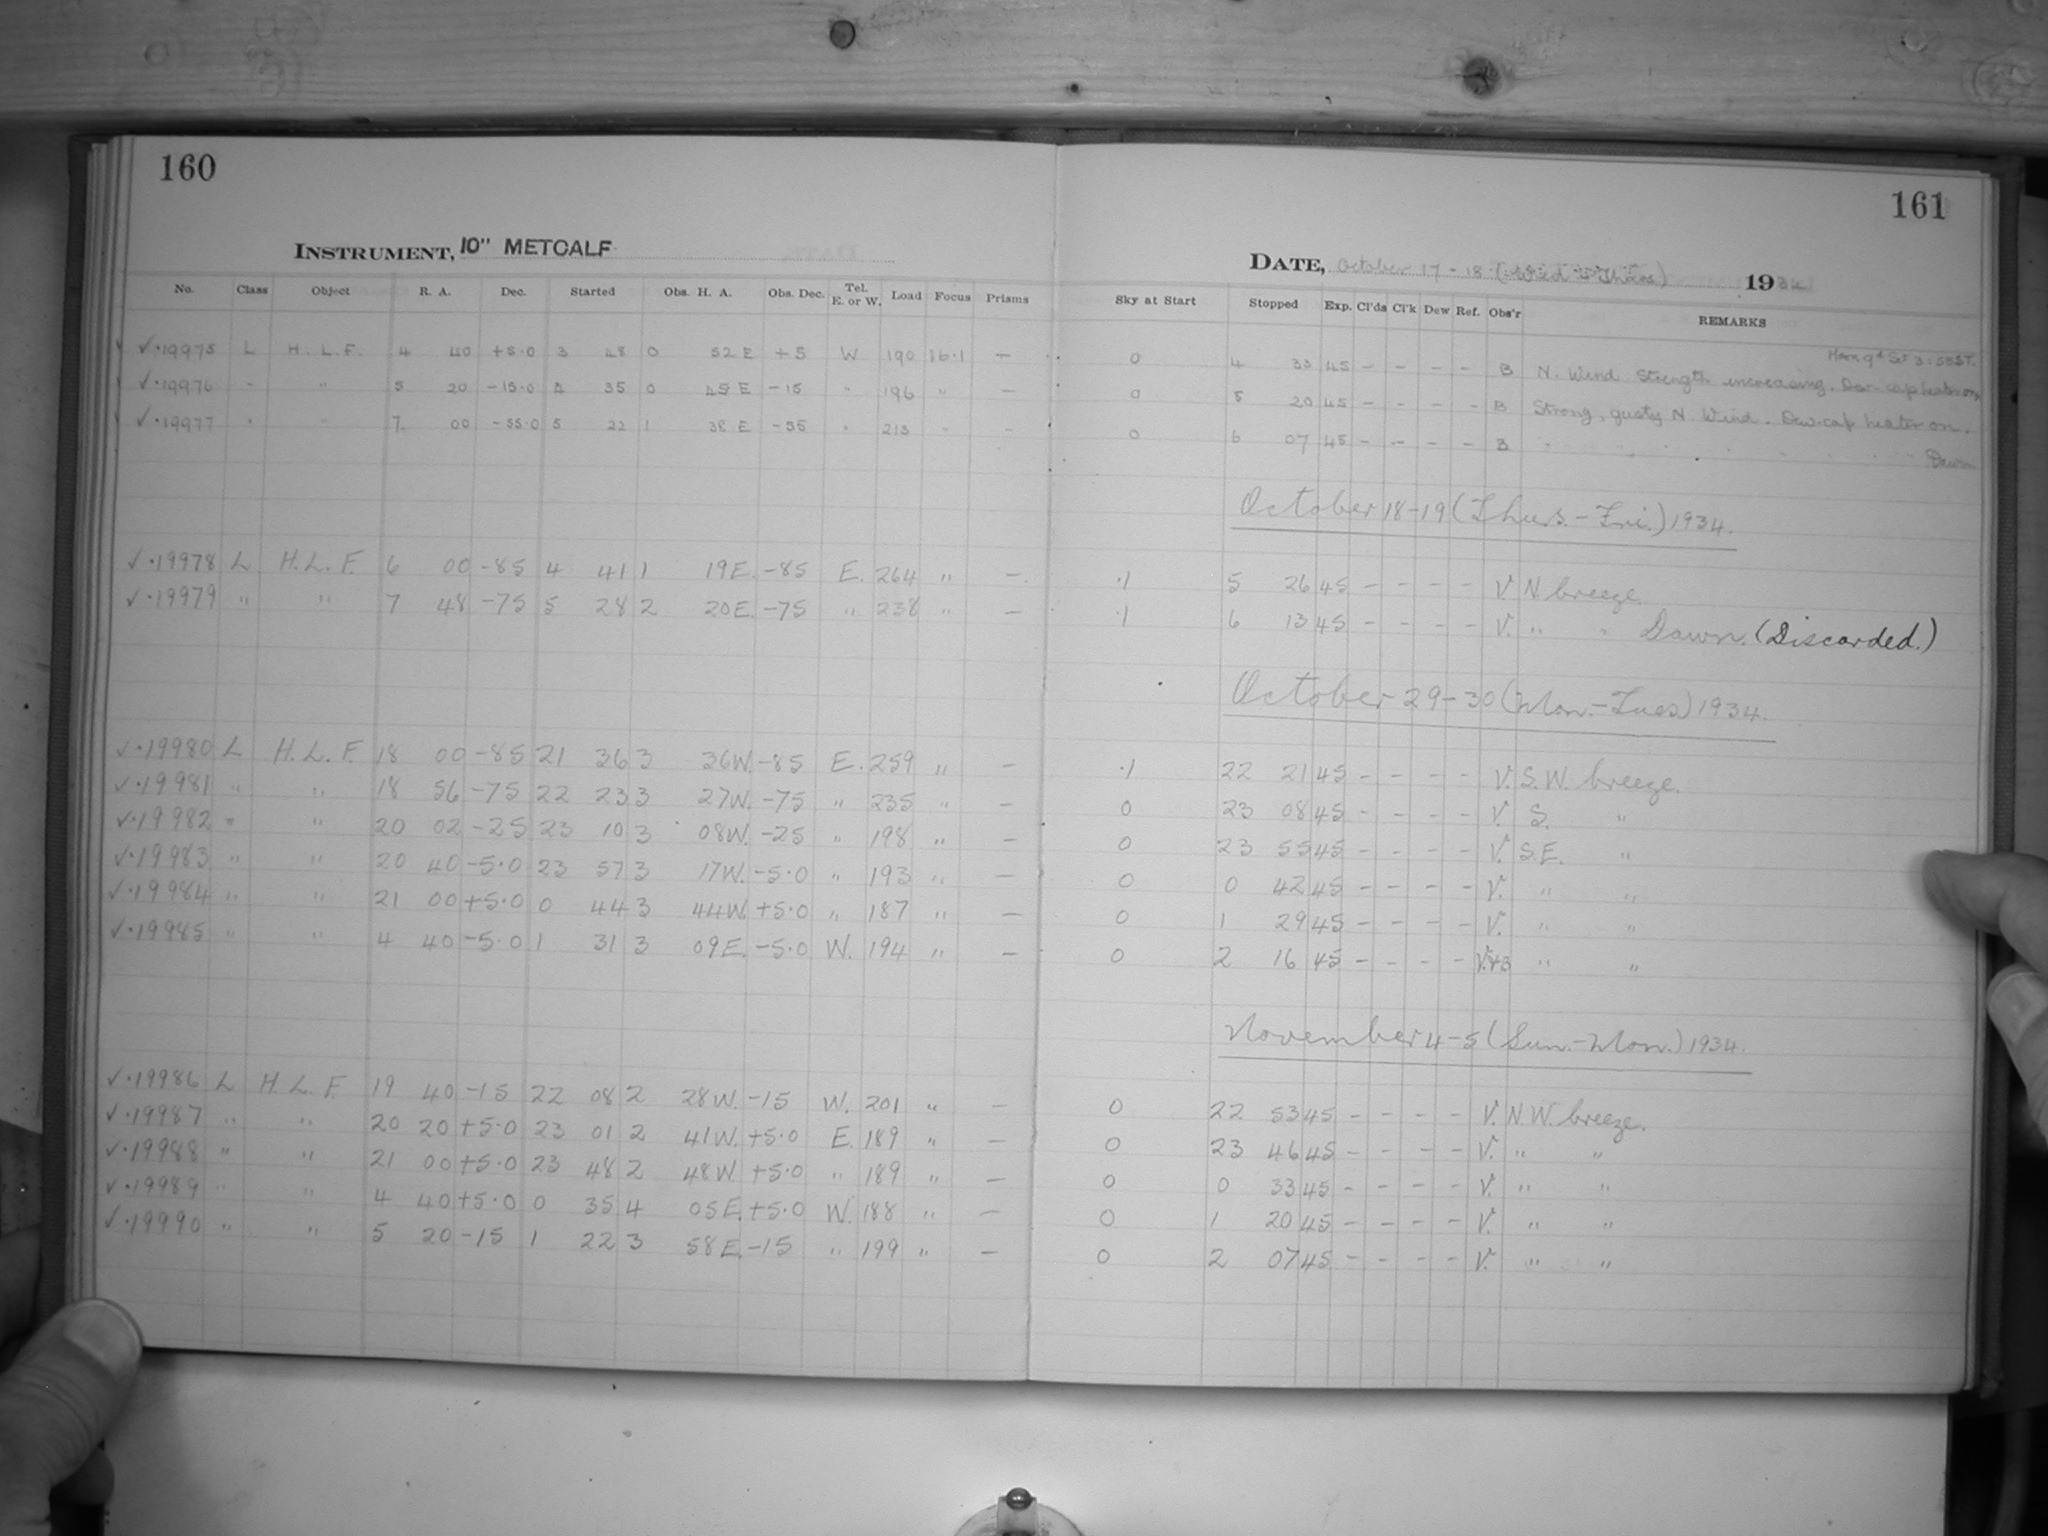 160
161
INSTRUMENT, 10" METCALF
DATE, October 17-18 (Wed - Thurs) 1934
No. Class Object R. A. Dec. Started Obs. H. A. Obs. Dec. Tel. E. or W. Load Focus Prisms Sky at Start Stopped Exp. Cl'ds Cl'k Dew Ref. Obs'r REMARKS
Moon 9d Set 3:58 ST.
✓·19975 L H. L. F. 4 40 +5·0 3 48 0 52 E +5 W 190 16·1 — 0 4 33 45 - - - - B N. Wind Strength increasing. Dew-cap heater on
✓·19976 " " 5 20 -15·0 4 35 0 45 E -15 " 196 " — 0 5 20 45 - - - - B Strong, gusty N. Wind. Dew-cap heater on.
✓·19977 " " 7 00 -55·0 5 22 1 38 E -55 " 213 " — 0 6 07 45 - - - - B " " " " " "
Dawn
October 18-19 (Thurs.-Fri.) 1934.
✓·19978 L H. L. F. 6 00 -85 4 41 1 19 E. -85 E. 264 " — ·1 5 26 45 - - - - V. N breeze.
✓·19979 " " 7 48 -75 5 28 2 20 E. -75 " 238 " — ·1 6 13 45 - - - - V. " " Dawn. (Discarded.)
October 29-30 (Mon.-Tues) 1934.
✓·19980 L H. L. F. 18 00 -85 21 36 3 36 W. -85 E. 259 " — ·1 22 21 45 - - - - V. S. W. breeze.
✓·19981 " " 18 56 -75 22 23 3 27 W. -75 " 235 " — 0 23 08 45 - - - - V. S. "
✓·19982 " " 20 02 -25 23 10 3 08 W. -25 " 198 " — 0 23 55 45 - - - - V. S.E. "
✓·19983 " " 20 40 -5·0 23 57 3 17 W. -5·0 " 193 " — 0 0 42 45 - - - - V. " "
✓·19984 " " 21 00 +5·0 0 44 3 44 W. +5·0 " 187 " — 0 1 29 45 - - - - V. " "
✓·19985 " " 4 40 -5·0 1 31 3 09 E. -5·0 W. 194 " — 0 2 16 45 - - - - V.+B " "
November 4-5 (Sun.-Mon.) 1934.
✓·19986 L H. L. F. 19 40 -15 22 08 2 28 W. -15 W. 201 " — 0 22 53 45 - - - - V. N. W. breeze.
✓·19987 " " 20 20 +5·0 23 01 2 41 W. +5·0 E. 189 " — 0 23 46 45 - - - - V. " "
✓·19988 " " 21 00 +5·0 23 48 2 48 W. +5·0 " 189 " — 0 0 33 45 - - - - V. " "
✓·19989 " " 4 40 +5·0 0 35 4 05 E. +5·0 W. 188 " — 0 1 20 45 - - - - V. " "
✓·19990 " " 5 20 -15 1 22 3 58 E. -15 " 199 " — 0 2 07 45 - - - - V. " "